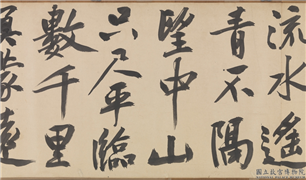 流水遙
青不隔
望中山
只尺平臨
數千里
國立故宮博物院